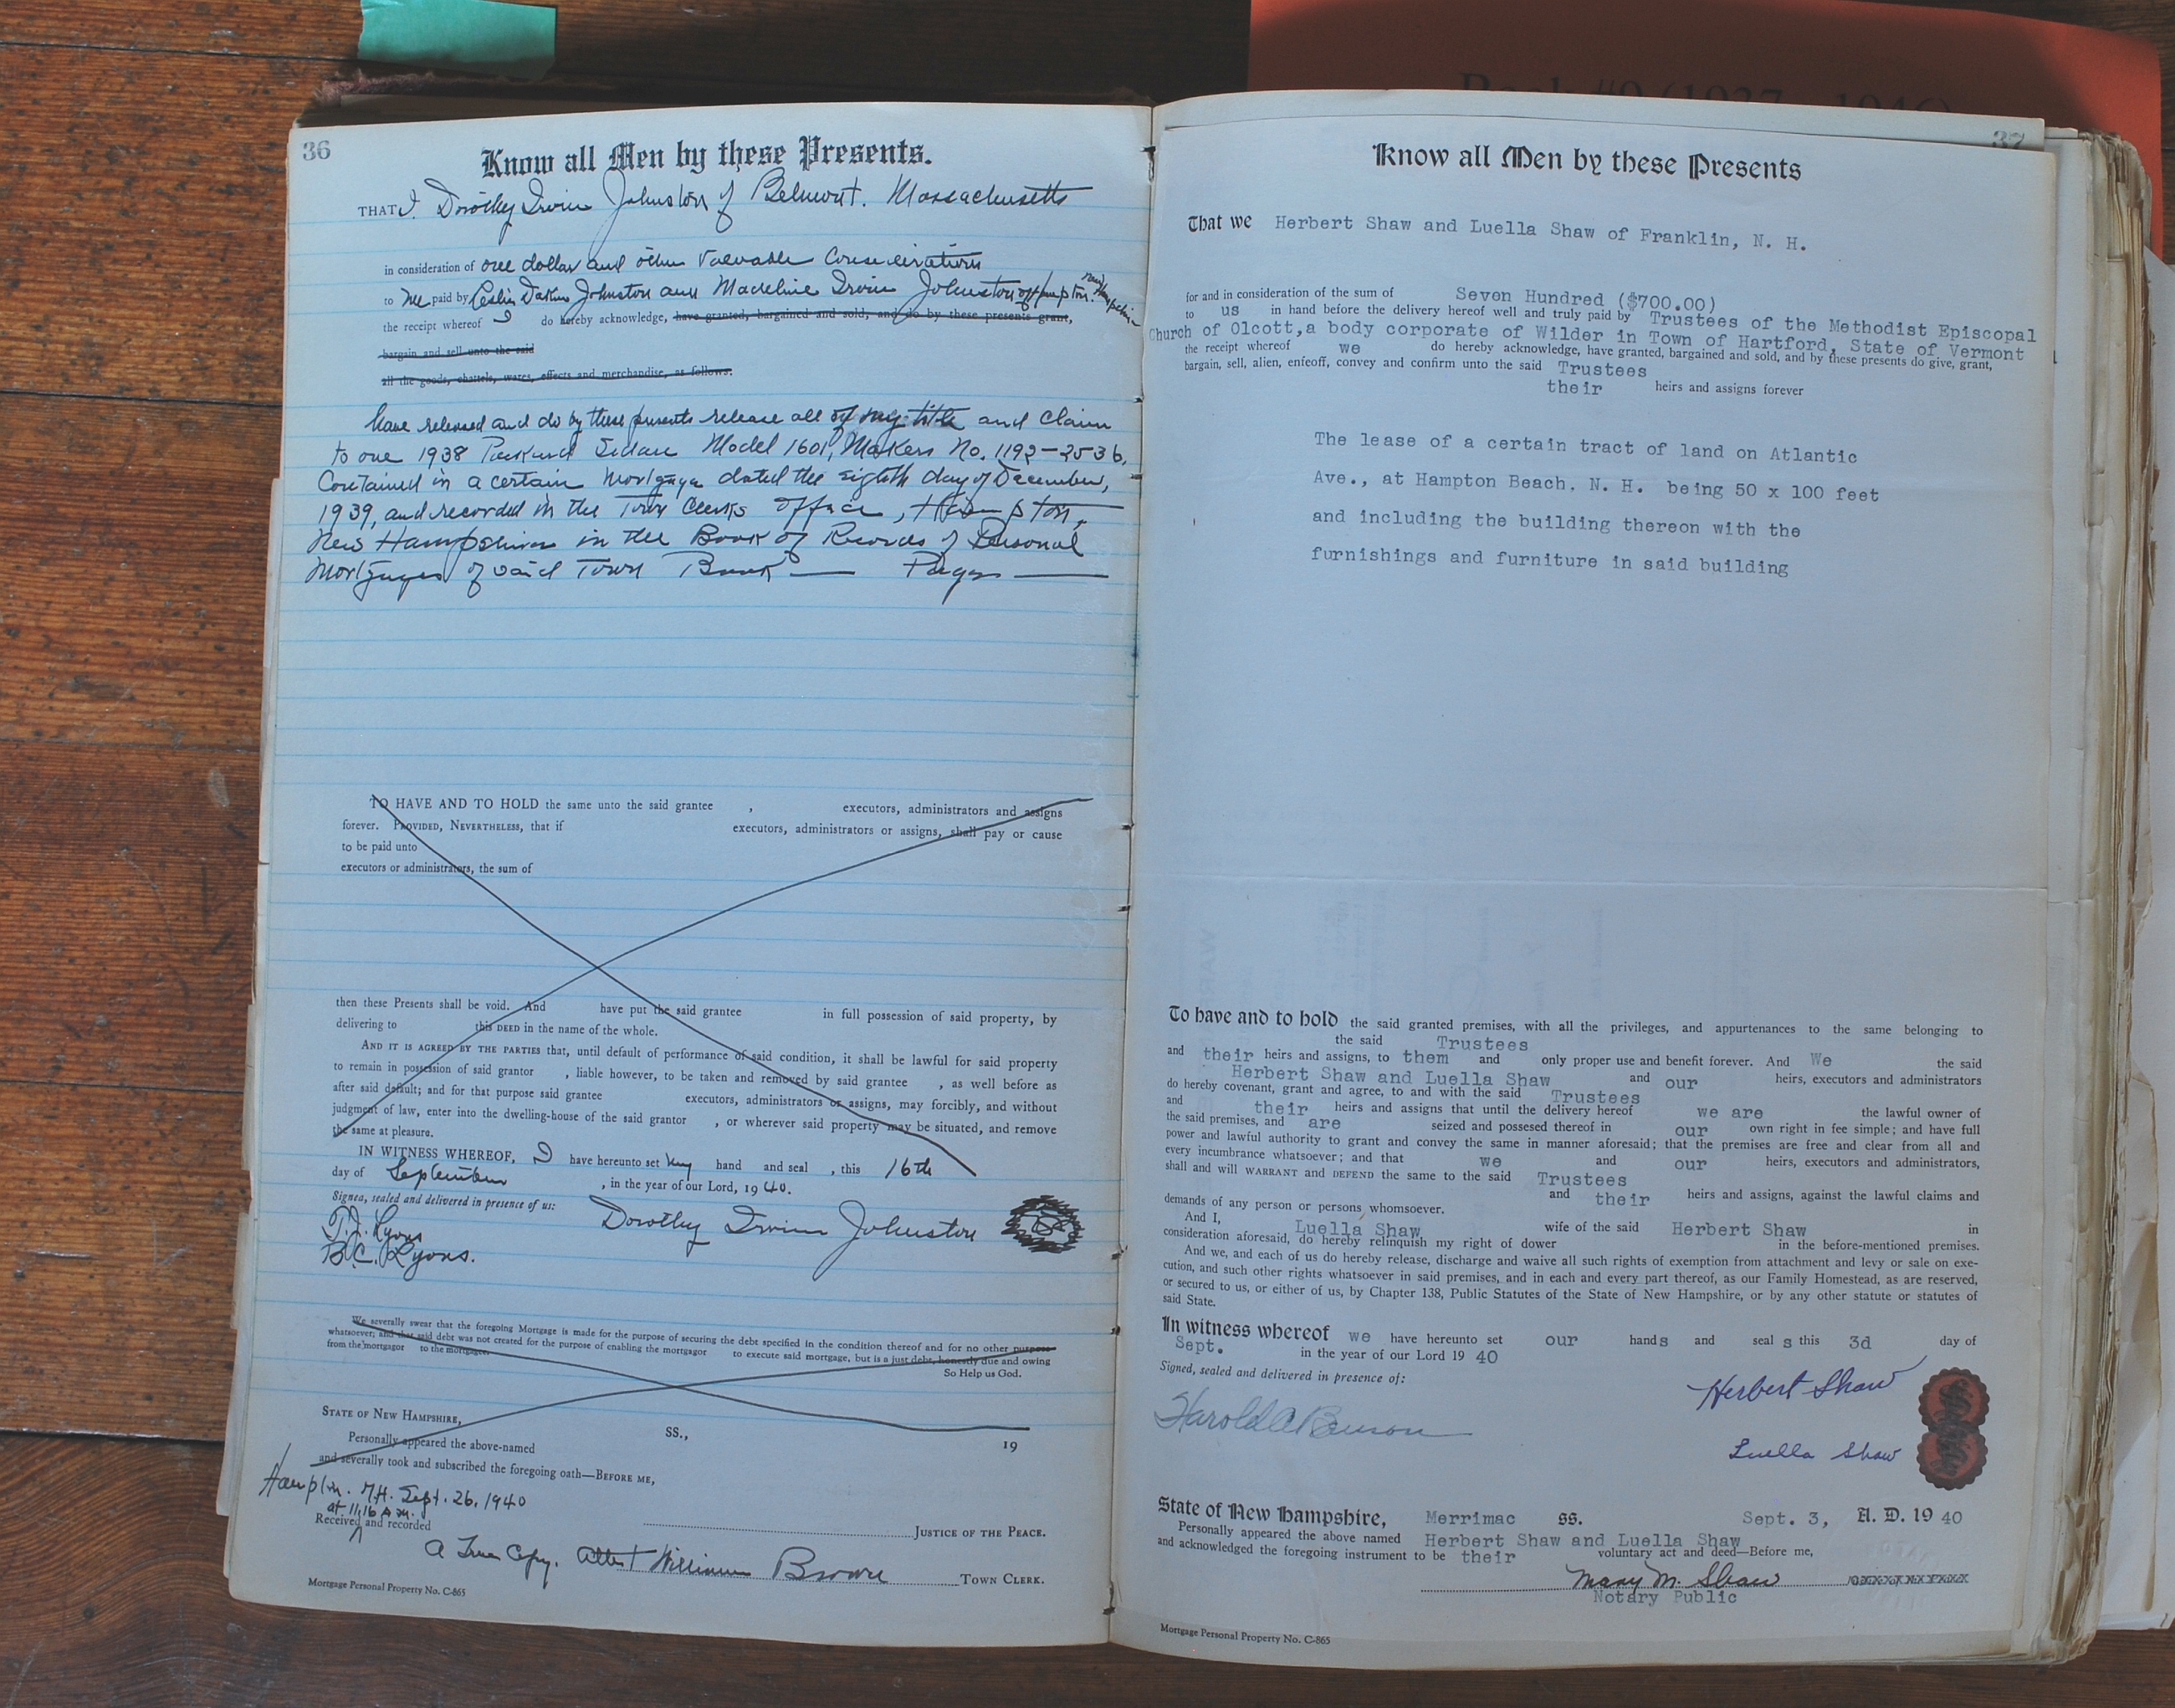 36
Know all Men by these Presents.
THAT I, Dorothy Irvin Johnston of Belmont, Massachusetts
in consideration of one dollar and other valuable considerations
to me paid by Leslie Dakin Johnston and Madeline Irvin Johnston of Hampton, New Hampshire
the receipt whereof I do hereby acknowledge, have granted, bargained and sold, and do by these presents grant,
bargain and sell unto the said
all the goods, chattels, wares, effects and merchandise, as follows:
have released and do by these presents release all of my title and claim
to one 1938 Packard Sedan Model 1601, Makers No. 1192-2536,
Contained in a certain Mortgage dated the eighth day of December,
1939, and recorded in the Town Clerks office, Hampton,
New Hampshire in the Book of Records of Personal
Mortgages of said Town Book — Page —
TO HAVE AND TO HOLD the same unto the said grantee , executors, administrators and assigns
forever. PROVIDED, NEVERTHELESS, that if executors, administrators or assigns, shall pay or cause
to be paid unto
executors or administrators, the sum of
then these Presents shall be void. And have put the said grantee in full possession of said property, by
delivering to this DEED in the name of the whole.
AND IT IS AGREED BY THE PARTIES that, until default of performance of said condition, it shall be lawful for said property
to remain in possession of said grantor , liable however, to be taken and removed by said grantee , as well before as
after said default; and for that purpose said grantee executors, administrators or assigns, may forcibly, and without
judgment of law, enter into the dwelling-house of the said grantor , or wherever said property may be situated, and remove
the same at pleasure.
IN WITNESS WHEREOF, I have hereunto set my hand and seal , this 16th
day of September , in the year of our Lord, 1940.
Signed, sealed and delivered in presence of us:
T. J. Lyons
B. C. Lyons.
Dorothy Irvin Johnston
We severally swear that the foregoing Mortgage is made for the purpose of securing the debt specified in the condition thereof and for no other purpose
whatsoever; and that said debt was not created for the purpose of enabling the mortgagor to execute said mortgage, but is a just debt, honestly due and owing
from the mortgagor to the mortgagee.
So Help us God.
STATE OF NEW HAMPSHIRE, SS., 19
Personally appeared the above-named
and severally took and subscribed the foregoing oath—BEFORE ME,
Hampton. N.H. Sept. 26, 1940
at 11,16 A.M.
Received and recorded
JUSTICE OF THE PEACE.
A True Copy. Attest William Brown TOWN CLERK.
Mortgage Personal Property No. C-865
Book #9 (1937 - 1946)
37
Know all Men by these Presents
That we Herbert Shaw and Luella Shaw of Franklin, N. H.
for and in consideration of the sum of Seven Hundred ($700.00)
to us in hand before the delivery hereof well and truly paid by Trustees of the Methodist Episcopal
Church of Olcott,a body corporate of Wilder in Town of Hartford, State of Vermont
the receipt whereof we do hereby acknowledge, have granted, bargained and sold, and by these presents do give, grant,
bargain, sell, alien, enfeoff, convey and confirm unto the said Trustees
their heirs and assigns forever
The lease of a certain tract of land on Atlantic
Ave., at Hampton Beach. N. H. being 50 x 100 feet
and including the building thereon with the
furnishings and furniture in said building
To have and to hold the said granted premises, with all the privileges, and appurtenances to the same belonging to
the said Trustees
and their heirs and assigns, to them and only proper use and benefit forever. And We the said
Herbert Shaw and Luella Shaw and our heirs, executors and administrators
do hereby covenant, grant and agree, to and with the said Trustees
and their heirs and assigns that until the delivery hereof we are the lawful owner of
the said premises, and are seized and possesed thereof in our own right in fee simple; and have full
power and lawful authority to grant and convey the same in manner aforesaid; that the premises are free and clear from all and
every incumbrance whatsoever; and that we and our heirs, executors and administrators,
shall and will WARRANT and DEFEND the same to the said Trustees
and their heirs and assigns, against the lawful claims and
demands of any person or persons whomsoever.
And I, Luella Shaw wife of the said Herbert Shaw in
consideration aforesaid, do hereby relinquish my right of dower in the before-mentioned premises.
And we, and each of us do hereby release, discharge and waive all such rights of exemption from attachment and levy or sale on exe-
cution, and such other rights whatsoever in said premises, and in each and every part thereof, as our Family Homestead, as are reserved,
or secured to us, or either of us, by Chapter 138, Public Statutes of the State of New Hampshire, or by any other statute or statutes of
said State.
In witness whereof we have hereunto set our hands and seal s this 3d day of
Sept. in the year of our Lord 19 40
Signed, sealed and delivered in presence of:
Harold A Benson
Herbert Shaw
Luella Shaw
State of New Hampshire, Merrimac ss. Sept. 3, A. D. 19 40
Personally appeared the above named Herbert Shaw and Luella Shaw
and acknowledged the foregoing instrument to be their voluntary act and deed—Before me,
Mary M. Shaw
Notary Public
Mortgage Personal Property No. C-865